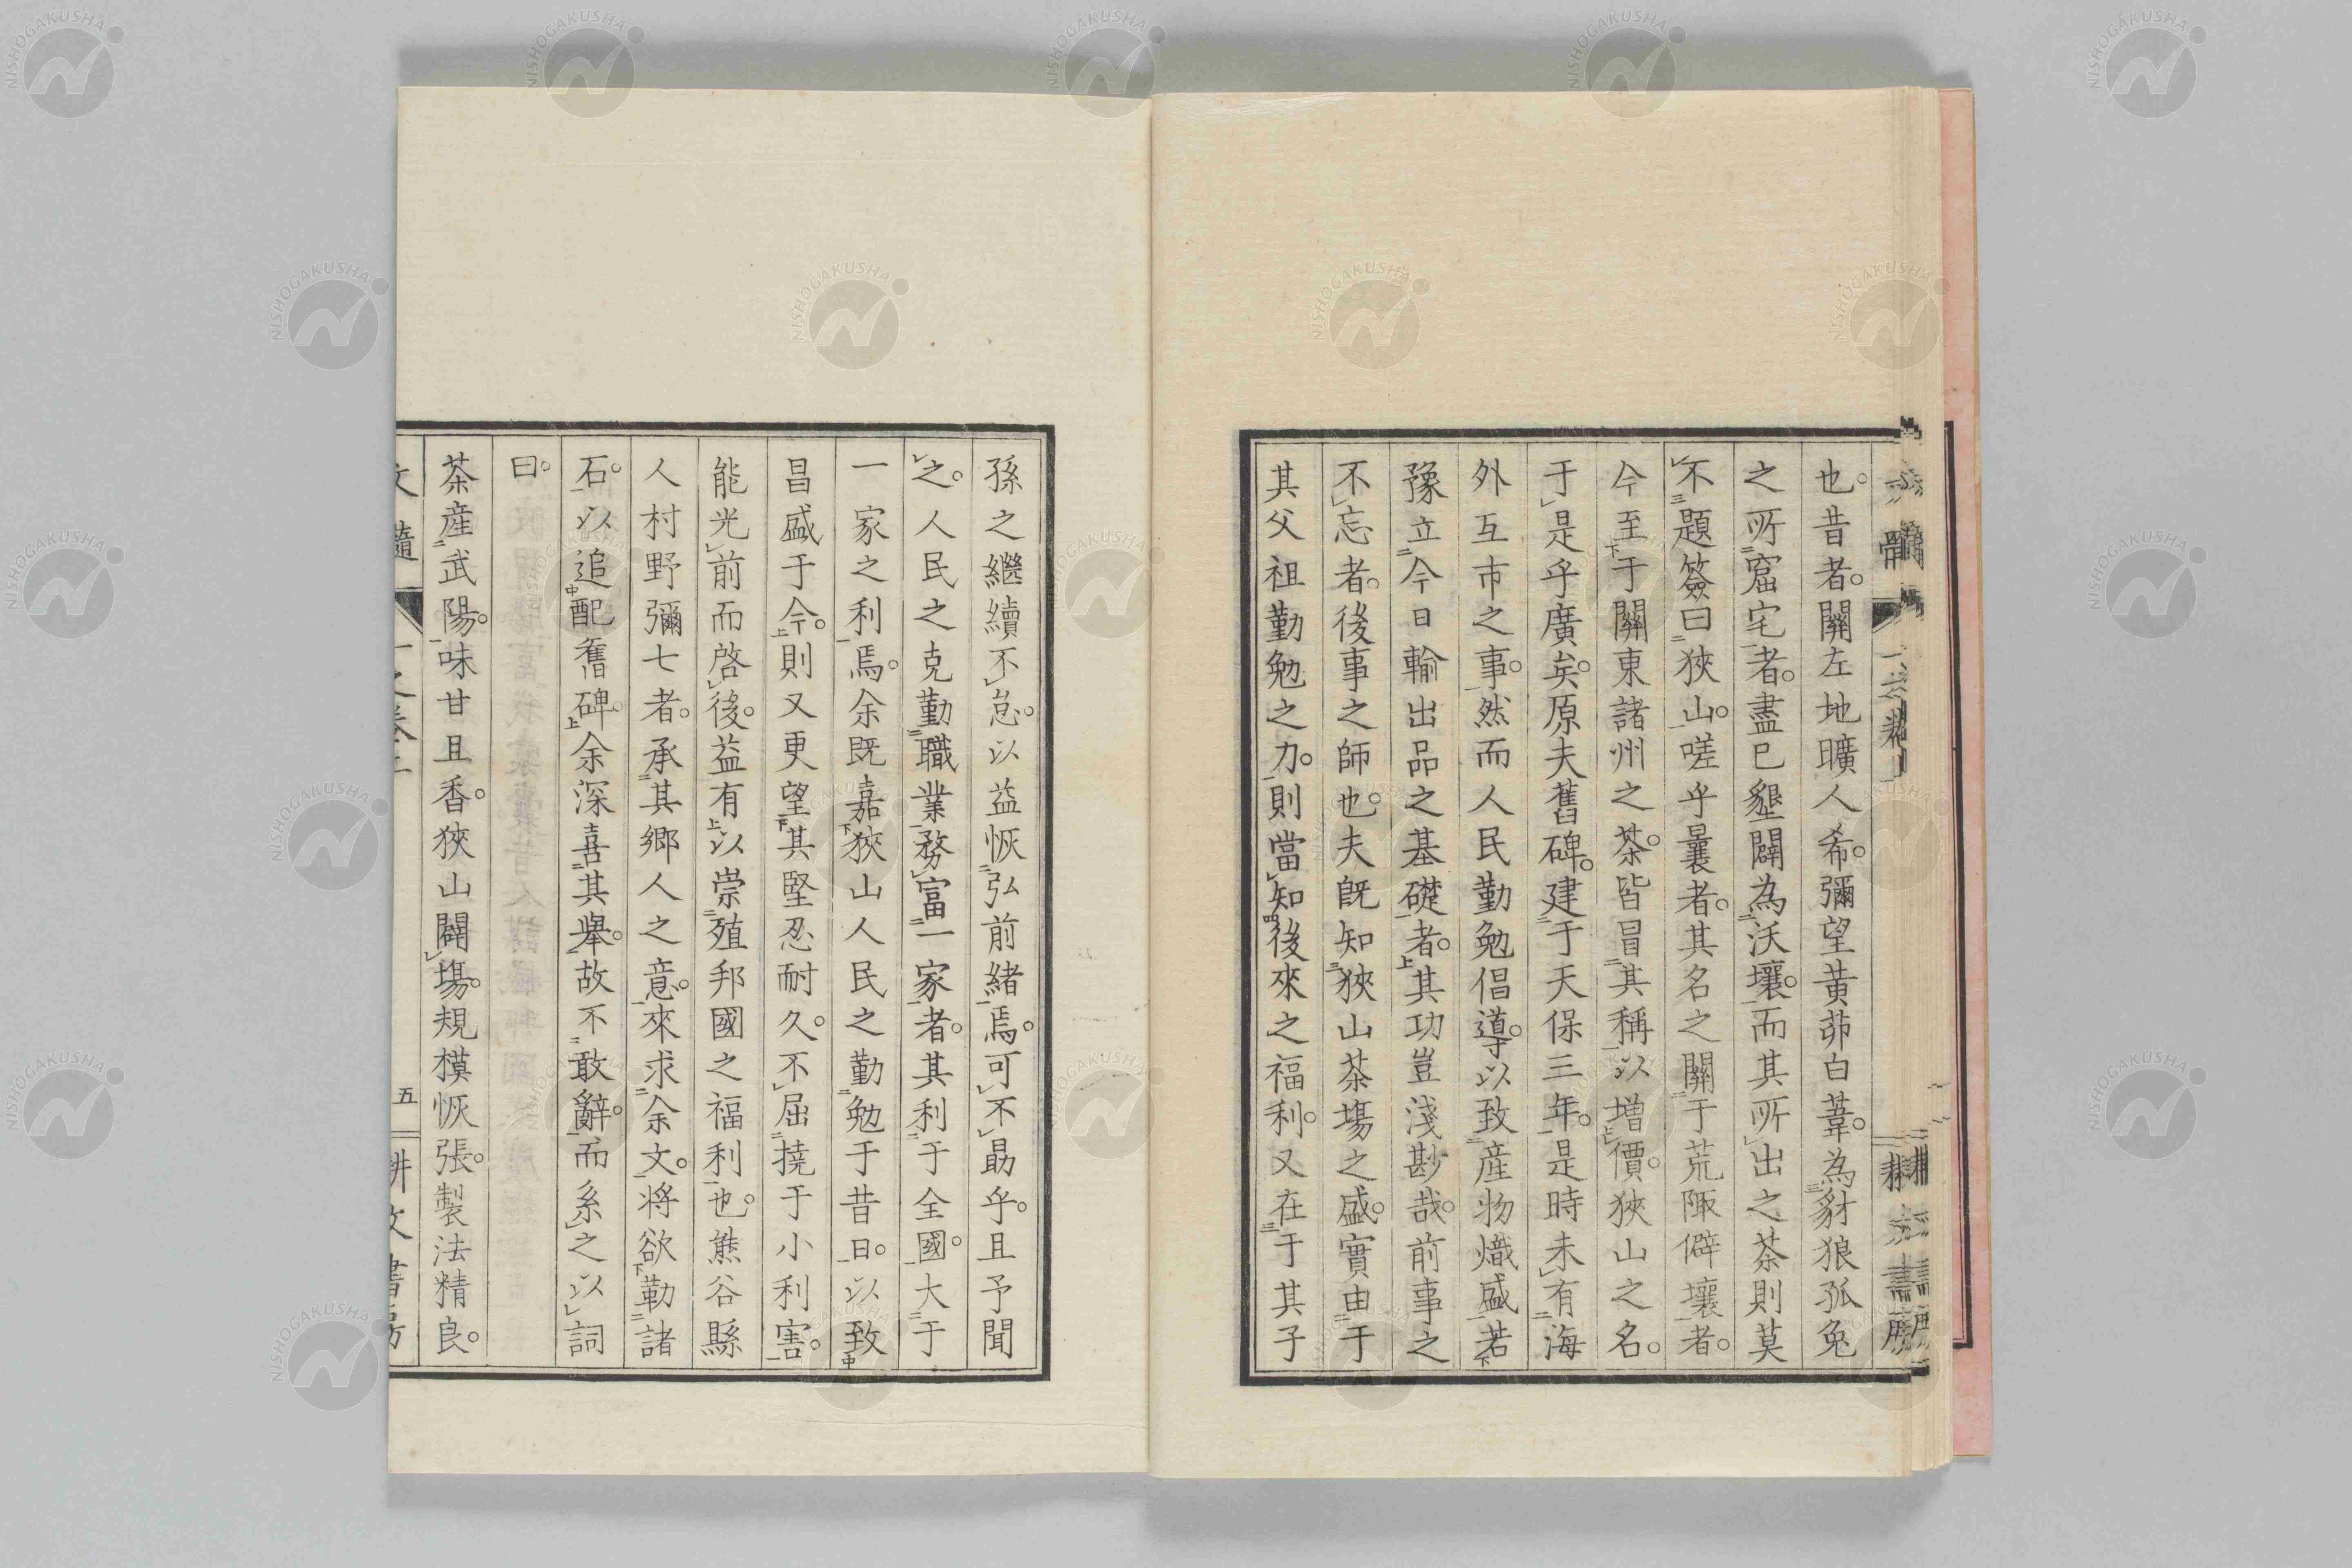 也。昔者。關左地曠人希。彌望黄茆白葦。為豺狼孤兔
之所窟宅者。盡已墾闢為沃壤。而其所出之茶則莫
不題簽曰狹山。嗟乎曩者。其名之關于荒陬僻壤者。
今至于關東諸州之茶。皆冒其稱以増價。狹山之名。
于是乎廣矣。原夫舊碑。建于天保三年。是時未有海
外互市之事。然而人民勤勉倡導。以致産物熾盛。若
豫立今日輸出品之基礎者。其功豈淺尠哉。前事之
不忘者。後事之師也。夫既知狹山茶塲之盛。實由于
其父祖勤勉之力。則當知後來之福利。又在于其子
孫之繼續不怠。以益恢弘前緒焉。可不勗乎。且予聞
之。人民之克勤職業務富一家者。其利于全國。大于
一家之利焉。余既嘉狹山人民之勤勉于昔日。以致
昌盛于今。則又更望其堅忍耐久。不屈撓于小利害。
能光前而啓後。益有以崇殖邦國之福利也。熊谷縣
人村野彌七者。承其鄉人之意。來求余文。将欲勒諸
石。以追配舊碑。余深喜其舉。故不敢辭。而系之以詞
曰。
茶産武陽。味甘且香。狹山闢塲。規模恢張。製法精良。
五
NISHOGAKUSHA